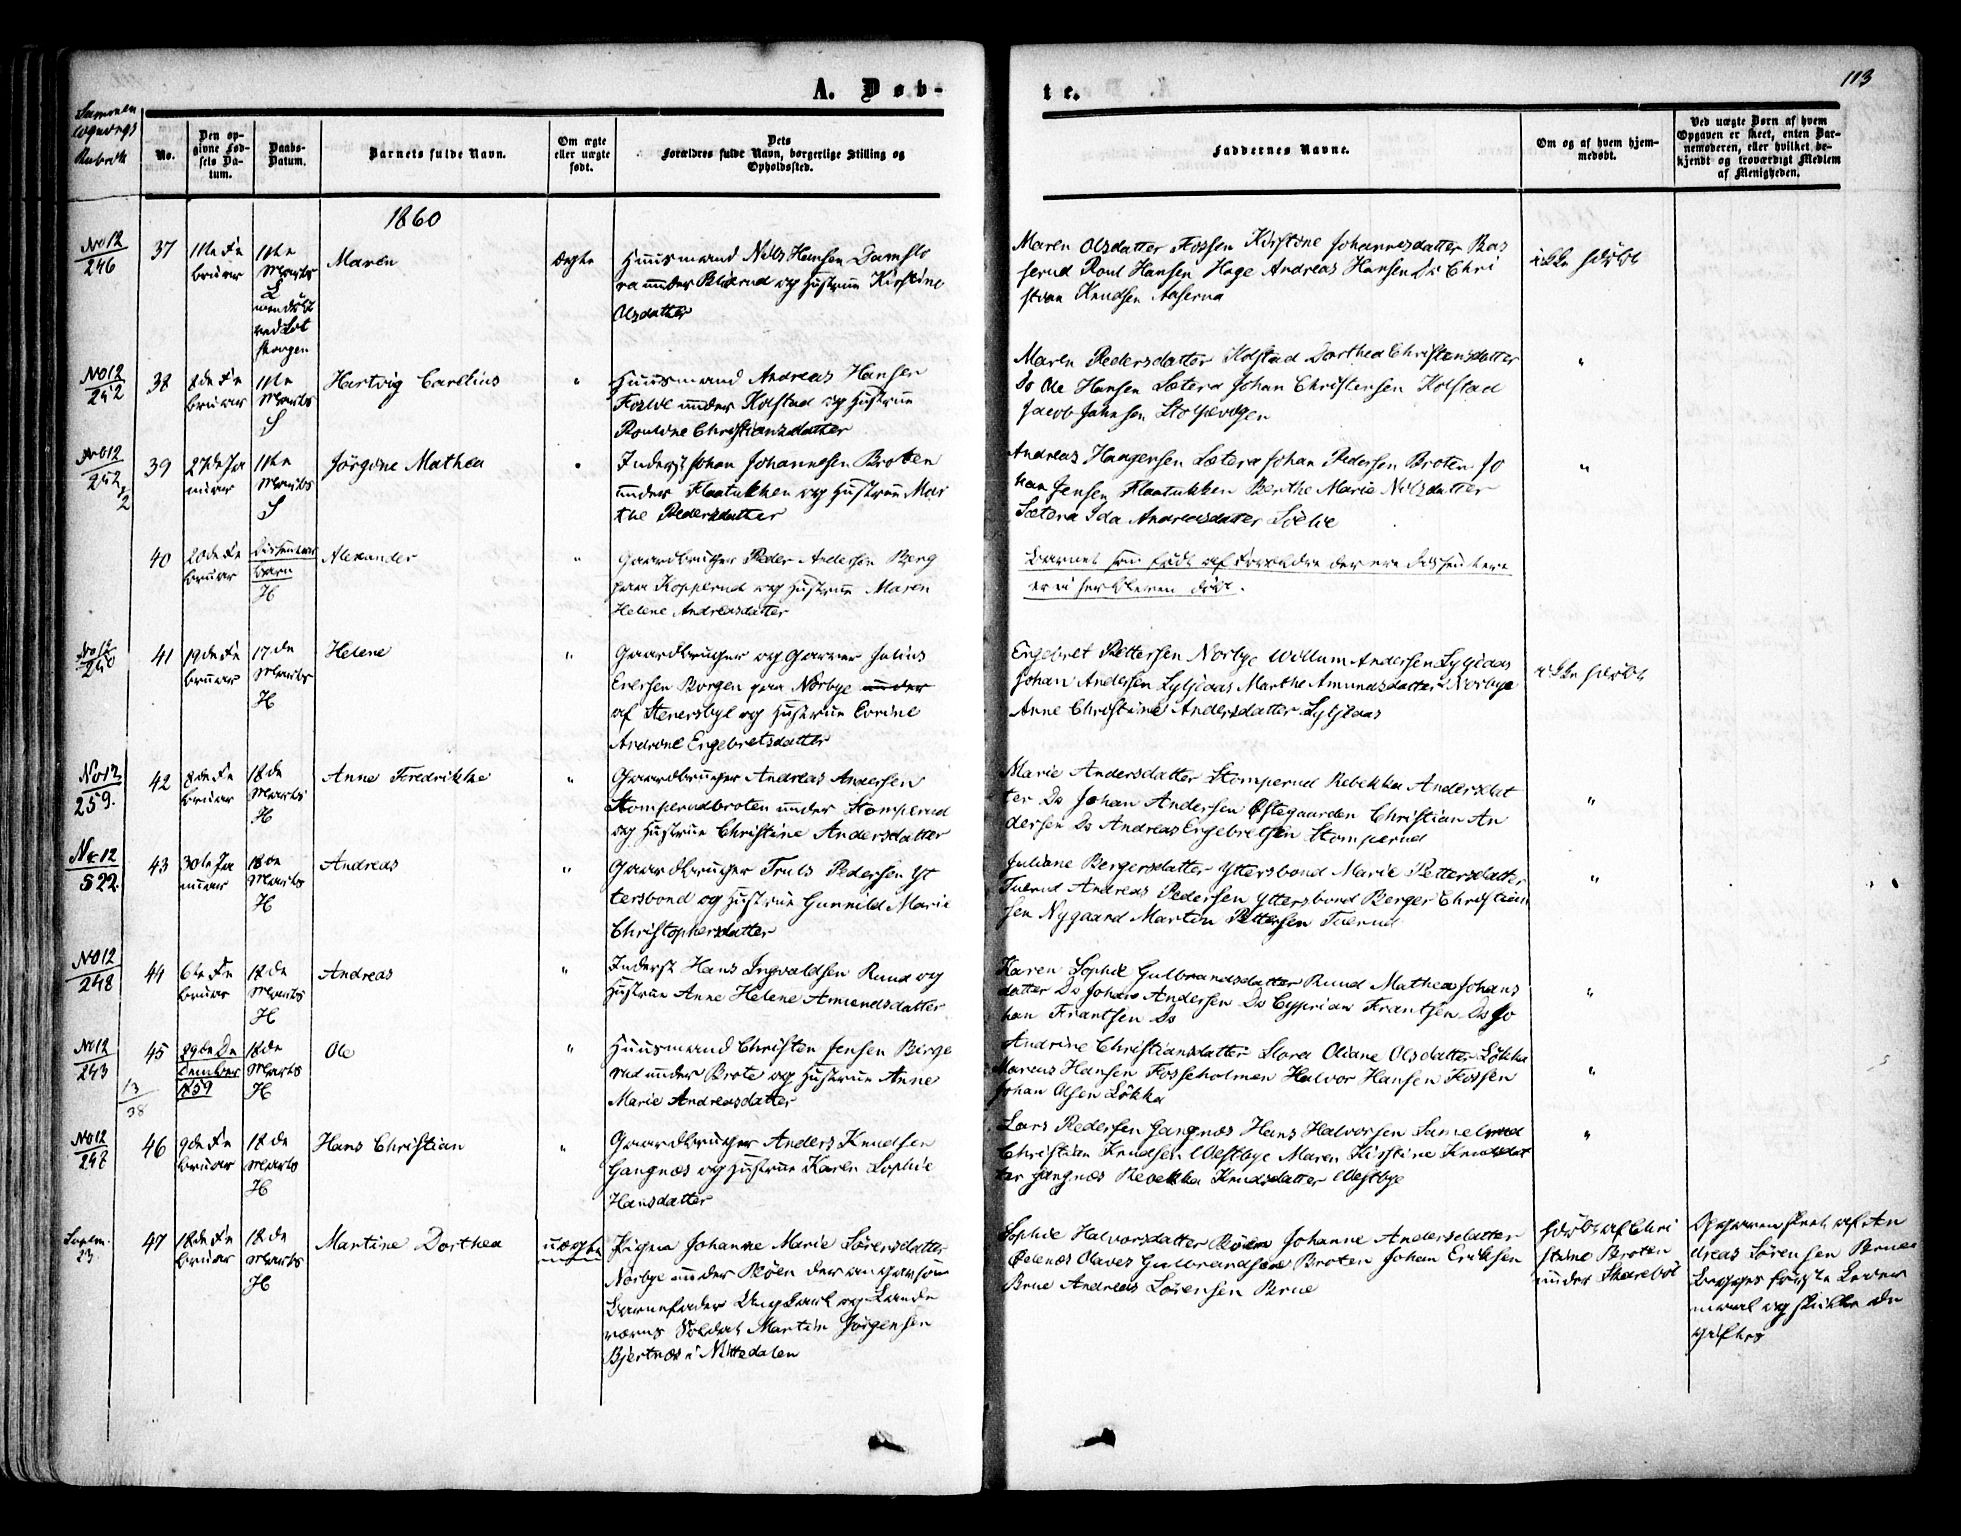 113
A. Døb-
te.
Sammen
lignings
Rubrik
No.
Den op-
givne Fød-
sels Da-
tum.
Daabs-
Datum.
Barnets fulde Navn.
Om ægte
eller uægte
født.
Dets
Forældres fulde Navn, borgerlige Stilling og
Opholdssted.
Faddernes Navne.
Om og af hvem hjem-
medøbt.
Ved uægte Børn af hvem
Opgaven er skeet, enten Bar-
nemoderen, eller hvilket be-
kjendt og troværdigt Medlem
af Menigheden.
1860
No 12
246
37
11te Fe
bruar
11te
Marts
Maren
Ægte
Huusmand Nils Hansen Damslo
ra under Blixrud og Hustrue Kirstine
Olsdatter
Maren Olsdatter Fossen Kirstine Johannesdatter Bas
serud Poul Hansen Hage Andreas Hansen Do Chri
stian Knudsen Aaserna
ikke hdøbt
No 12
252
38
8de Fe
bruar
11te
Marts
S
Hartvig Carelius
"
Huusmand Andreas Hansen
under Kolstad og Hustrue
Pouline Christiansdatter
Maren Pedersdatter Kolstad Dorthea Christensdatter
Do Ole Hansen Sætera Johan Christensen Kolstad
Jacob Johnsen
"
No 12
252
2
39
27de Ja
nuar
11te
Marts
S
Jørgine Mathea
"
Inderst Johan Johannesen Broten
under Flaatukken og Hustrue Mar
the Pedersdatter
Andreas Haagensen Sætera Johan Pedersen Broten Jo
han Jensen Flaatukken Berthe Marie Nilsdatter
Sætera Ida Andreasdatter
"
40
20de Fe
bruar
Dissenter
barn
H
Alexander
"
Gaardbruger Peder Andersen Berg
paa Kopperud og Hustrue Maren
Helene Andreasdatter
Barnet som født af Forældre der ere Dissentere
er ikke døbt.
No 12
240
41
19de Fe
bruar
17de
Marts
H
Helene
"
Gaardbruger og Garver Julius
Eversen Borgen paa Norbye under
af Stenersbye og Hustrue Corine
Andrine Engebretsdatter
Engebret Pettersen Norbye Willum Andersen Lyljdaas
Johan Andersen Lyljdaas Marthe Amundsdatter Norbye
Anne Christine Andersdatter Lyljdaas
ikke hdøbt
No 12
259.
42
8de Fe
bruar
18de
Marts
H
Anne Fredrikke
"
Gaardbruger Andreas Andersen
Stomperudbroten under Stomperud
og Hustrue Christine Andersdatter
Marie Andersdatter Stomperud Rebekka Andersdat
ter Do Johan Andersen Østegaarden Christian An
dersen Do Andreas Engebretsen Stomperud
"
No 12
522.
43
30te Ja
nuar
18de
Marts
H
Andreas
"
Gaardbruger Truls Pedersen Yt
tersbond og Hustrue Gunnild Marie
Christophersdatter
Juliane Bergersdatter Yttersbond Marie Pettersdatter
Tuerud Andreas Pedersen Yttersbond Berger Christian
sen Nygaard Martin Pettersen Tuerud
"
No 12
248
44
6te Fe
bruar
18de
Marts
H
Andreas
"
Inderst Hans Ingvaldsen Ruud og
Hustrue Anne Helene Amundsdatter
Karen Sophie Gulbrandsdatter Ruud Mathea Johans
datter Do Johan Andersen Do Cyprian Frantsen Do Jo
han Frantsen Do
"
No 12
243
13
38
45
29de De
cember
1859
18de
Marts
H
Ole
"
Huusmand Christen Jensen Birge
rud under Brote og Hustrue Anne
Marie Andreasdatter
Andrine Christiansdatter Slora Oliane Olsdatter Løkka
Marcus Hansen Fosseholmen Halvor Hansen Fossen
Johan Olsen Løkka
"
No 12
247
46
9de Fe
bruar
18de
Marts
H
Hans Christian
"
Gaardbruger Anders Knudsen
Gangnæs og Hustrue Karen Sophie
Hansdatter
Lars Pedersen Gangnæs Hans Halvorsen Samelrud
Christian Knudsen Westbye Maren Kirstine Knudsdat
ter Gangnæs Rebekka Knudsdatter Westbye
"
23
47
18de Fe
bruar
18de
Marts
H
Martine Dorthea
uægte
Pigen Johanne Marie Sørensdatter
Norbye under Bøen der angav som
Barnefader Ungkarl og Lande
værns Soldat Martin Jørgensen
Bjertnæs i Nittedalen
Sophie Halvorsdatter Bøen Johanne Andersdatter
Olaves Gulbrandsen Broten Johan Eriksen
Brue Andreas Sørensen Brue
hdøbt af Chri
stine Broten
under Skarebøl
Opgaven skeet af An
dreas Sørensen Brue
Begges første Leier
maal og skulle de
giftes